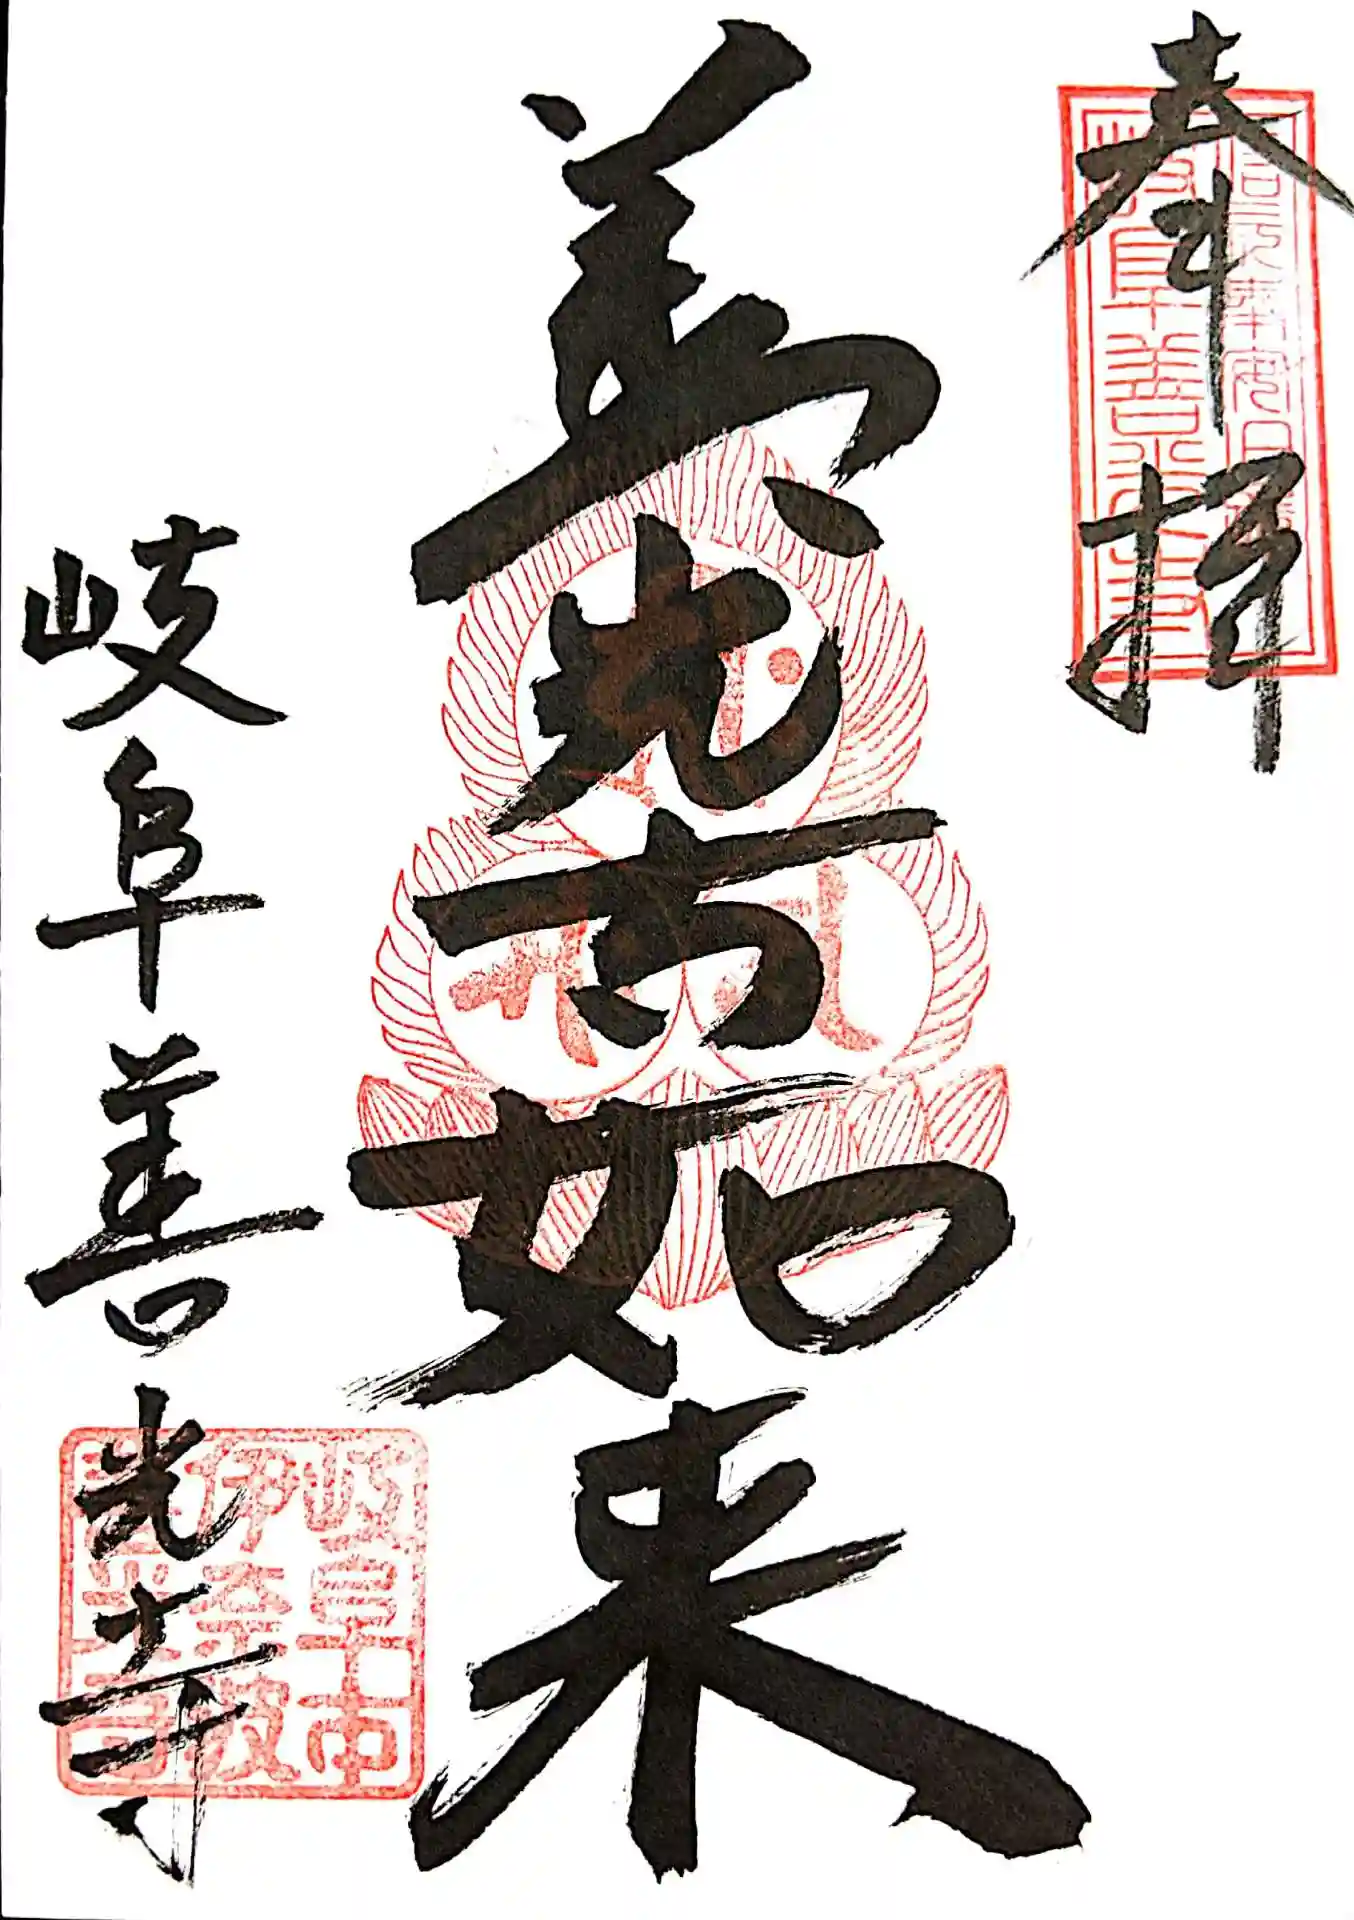 奉拝
岐阜善光寺
善光寺如来
岐阜善光寺
岐阜市
伊奈波
善光寺